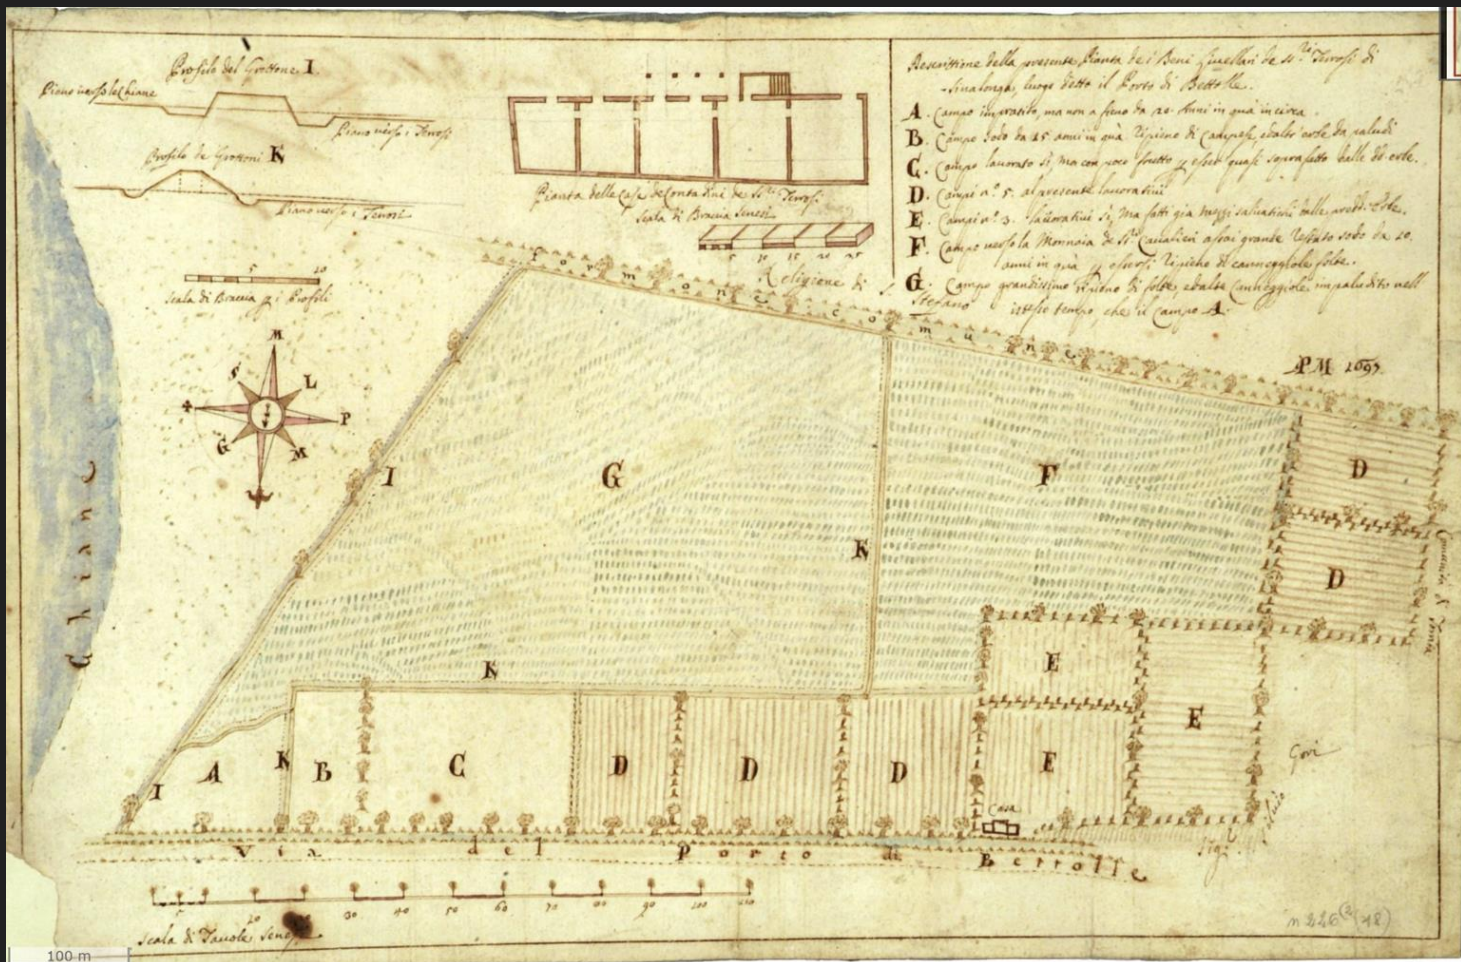 Profilo del Grottone I.
Piano verso le Chiane
Piano verso i Terrosi
Profilo de Grottoni K
Piano verso i Terrosi
Scala di Braccia p i Profili
5 10
Pianta delle Case de Contadini de SS.ri Terrosi
Scala di Braccia Senesi
5 10 15 20 25
Descrittione della presente Pianta de i Beni livellari de SS.ri Terrosi di
Sinalonga, luogo detto il Porto di Bettolle.
A. Campo impratito, ma non a fieno da 12 Anni in quà in circa.
B. Campo sodo da 15 anni in qua ripieno di et altr' erbe da paludi
C. Campo lavorato sì, ma con poco frutto p esser quasi soprafatto dalle de. erbe.
D. Campi n.o 5. al presente lavorativi
E. Campi n.o 3. lavorativi sì, ma fatti già mezzi salvatichi dalle erbe.
F. Campo verso la Monnoia de SS.ri Cavalieri assai grande restato sodo da 10.
anni in quà p essersi ripieno di cannegiole folte.
G. Campo grandissimo ripieno di folte, et alte Canneggiole impaludito nell'
istesso tempo, che il Campo A.
Religione di S. Stefano
Confine comune
PM 1697
M
S L
P
G M
Chiane
I G K F D
D
K E
E
I A K B C D D D E
Casa
Gori
Via del Porto di Bettolle
5 20 30 40 50 60 70 80 90 100 110
Scala di Tavole Senesi
n 226 (2) (18)
100 m